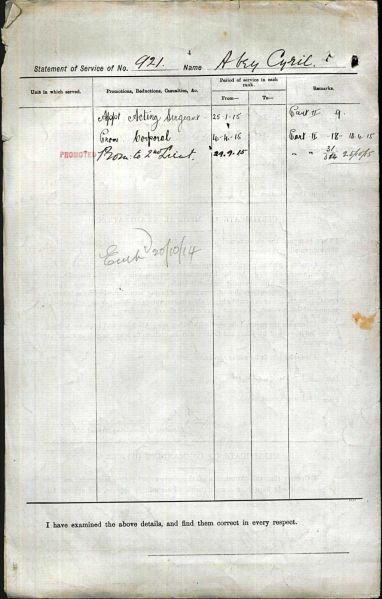 Statement of Service of No. 921. Name Abey Cyril.
Unit in which served. Promotions, Reductions, Casualties, &c. Period of service in each rank. From— To— Remarks.
Appt Acting Sergeant 25·1·15 Part II 9.
From Corporal Part II - 18-
PROMOTED Prom: to 2nd Lieut. 29.9.15 " "
Emb'd 20/10/14
I have examined the above details, and find them correct in every respect.